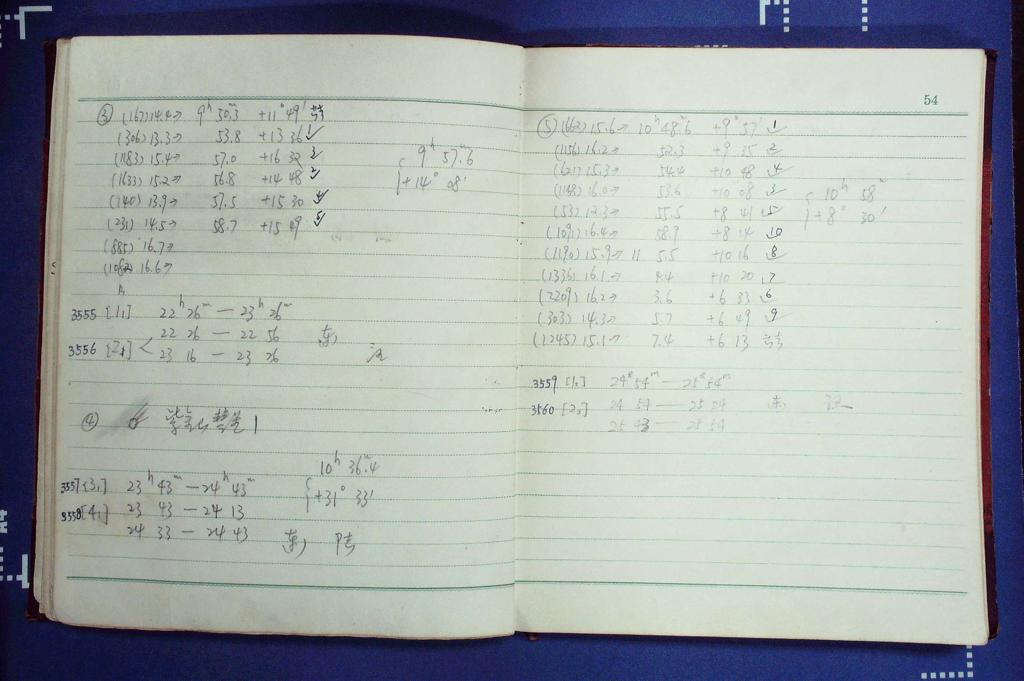 ③ (162) 14.4→ 9ʰ 50.ᵐ3 +11° 49′
(306) 13.3→ 53.8 +13 36 1✓
(1183) 15.4→ 57.0 +16 32 3✓
(1633) 15.2→ 56.8 +14 48 2✓
9ʰ 57.ᵐ6
+14° 08′
(140) 13.9→ 57.5 +15 30 4✓
(231) 14.5→ 58.7 +15 09 5✓
(885) 16.7→
16.6→
3555 [1₁] 22ʰ 26ᵐ — 23ʰ 26ᵐ
3556 22 26 — 22 56 东
23 16 — 23 26
④ 紫金山彗星1
10ʰ 36.ᵐ4
+31° 33′
3557 [3₁] 23ʰ 43ᵐ — 24ʰ 43ᵐ
3558 [4₁] 23 43 — 24 13
24 33 — 24 43 东
54
⑤ (663) 15.6→ 10ʰ 48.ᵐ6 +9° 57′ 1✓
(1156) 16.2→ 52.3 +9 35 2✓
(621) 15.3→ 54.4 +10 48 4✓
(1148) 16.0→ 53.6 +10 08 3✓
(53) 12.3→ 55.5 +8 41 5✓
10ʰ 58ᵐ
+8° 30′
(1091) 16.4→ 58.9 +8 14 10✓
(1190) 15.9→ 11 5.5 +10 16 8✓
(1336) 16.1→ 4.4 +10 20 7✓
(2209) 16.2→ 3.6 +6 33 6✓
(303) 14.3→ 5.7 +6 49 9✓
(1245) 15.1→ 7.4 +6 13
3559 24ʰ 54ᵐ — 25ʰ 54ᵐ
3560 24 54 — 25 24 东
25 43 — 25 54